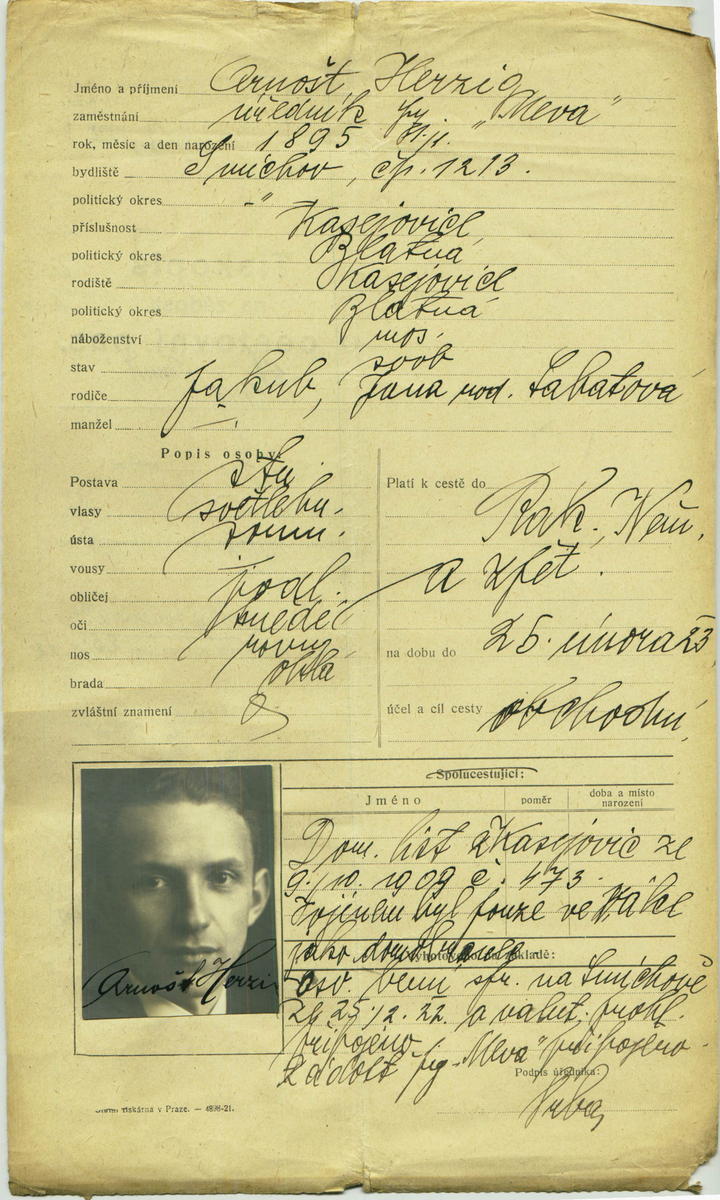 Jméno a příjmení Arnošt Herzig
zaměstnání úředník fy. "Meva"
rok, měsíc a den narození 1895
bydliště Smíchov, čp. 1213.
politický okres -"-
příslušnost Kasejovice
politický okres Blatná
rodiště Kasejovice
politický okres Blatná
náboženství mos.
stav svob
rodiče Jakub, Jana rod. Sabatová
manžel
Popis osoby:
Postava stř.
vlasy
ústa
vousy —
obličej podl.
oči hnědé
nos rovný
brada oblá
zvláštní znamení
Platí k cestě do
Rak., Něm.
a zpět.
na dobu do 25. února 23
účel a cíl cesty obchodní
Spolucestující:
Jméno poměr doba a místo narození
Dom. list z Kasejovic ze
9./10. 1909 č. 473.
Vojínem byl pouze ve válce
jako
Vyhotoveno na základě:
osv. na Smíchově
22. a valut. prohl.
připojeno
žádost fy "Meva" připojeno.
Podpis úředníka:
Vrba
Arnošt Herzig
tiskárna v Praze. — 4898-21.